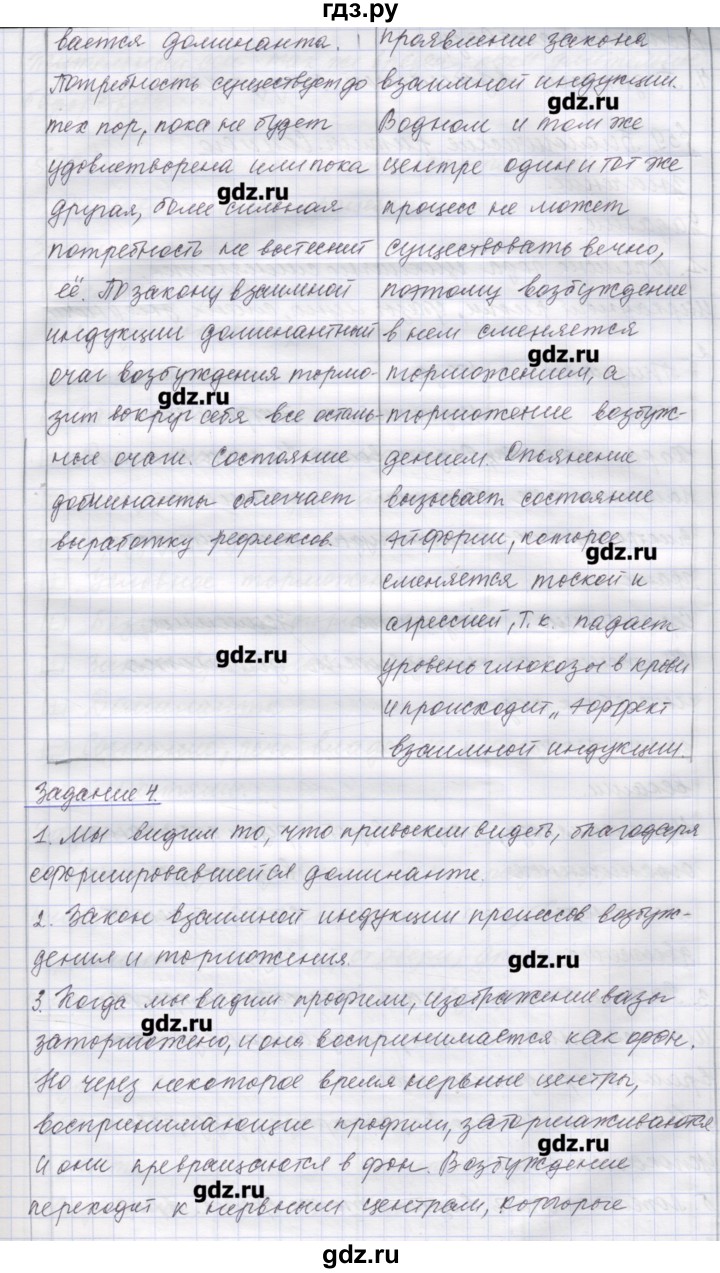 гдз.ру
вается доминанта.
Потребность существует до
тех пор, пока не будет
удовлетворена или пока
другая, более сильная
потребность не вытеснит
её. По закону взаимной
индукции доминантный
очаг возбуждения тормо-
зит вокруг себя все осталь-
ные очаги. Состояние
доминанты облегчает
выработку рефлексов.
проявление закона
взаимной индукции.
В одном и том же
центре один и тот же
процесс не может
существовать вечно,
поэтому возбуждение
в нем сменяется
торможением, а
торможение возбуж-
дением. Опьянение
вызывает состояние
эйфории, которое
сменяется тоской и
агрессией, т.к. падает
уровень глюкозы в крови
и происходит „ эффект
взаимной индукции.
gdz.ru
gdz.ru
gdz.ru
gdz.ru
gdz.ru
gdz.ru
Задание 4.
1. Мы видим то, что привыкли видеть, благодаря
сформировавшейся доминанте.
2. Закон взаимной индукции процессов возбуж-
дения и торможения.
gdz.ru
3. Когда мы видим профили, изображение вазы
gdz.ru
заторможено, и она воспринимается как фон.
Но через некоторое время нервные центры,
воспринимающие профили, затормаживаются
gdz.ru
и они превращаются в фон. Возбуждение
gdz.ru
переходит к нервным центрам, которые
gdz.ru